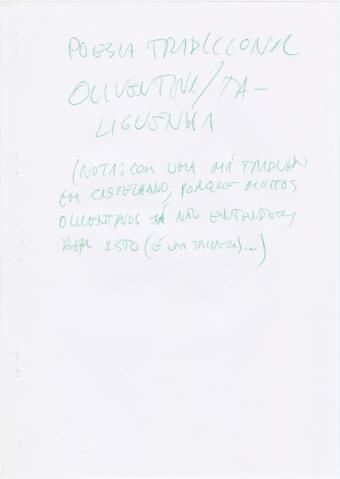 POESIA TRADICIONAL
OLIVENTINA/TA-
LIGUENHA
(NOTA: COM UMA MÁ TRADUÇÃO
EM CASTELHANO, PORQUE MUITOS
OLIVENTINOS JÁ NÃO ENTENDEM
BEM ISTO (É UMA TRISTEZA)...)